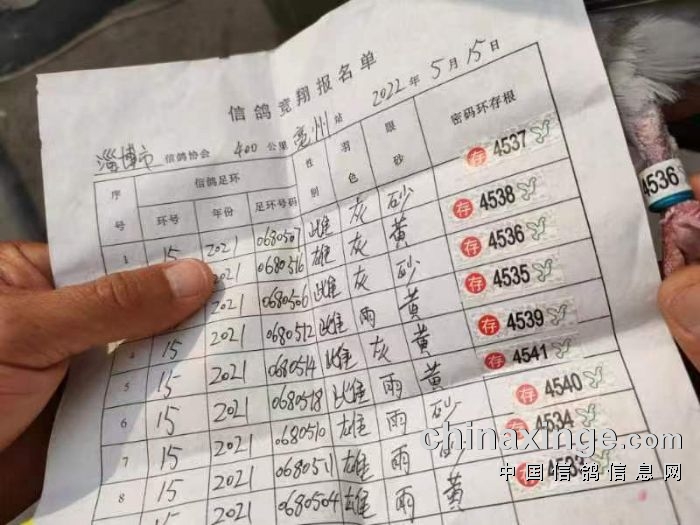 信鸽竞翔报名单
淄博市 信鸽协会 400 公里 亳州 站 2022 年 5 月 15 日
序号 信鸽足环 性别 羽色 眼砂 密码环存根
环号 年份 足环号码
1 15 2021 0680507 雌 灰 砂 存 4537
2021 0680516 雄 灰 黄 存 4538
2021 0680506 雌 灰 砂 存 4536
4 15 2021 0680512 雌 雨 黄 存 4535
5 15 2021 0680514 雌 灰 黄 存 4539
6 15 2021 0680518 雌 雨 黄 存 4541
7 15 2021 0680510 雄 雨 砂 存 4540
8 15 2021 0680511 雄 雨 存 4534
15 2021 0680504 雄 雨 黄 存
4536
chinaxinge.com
中国信鸽信息网